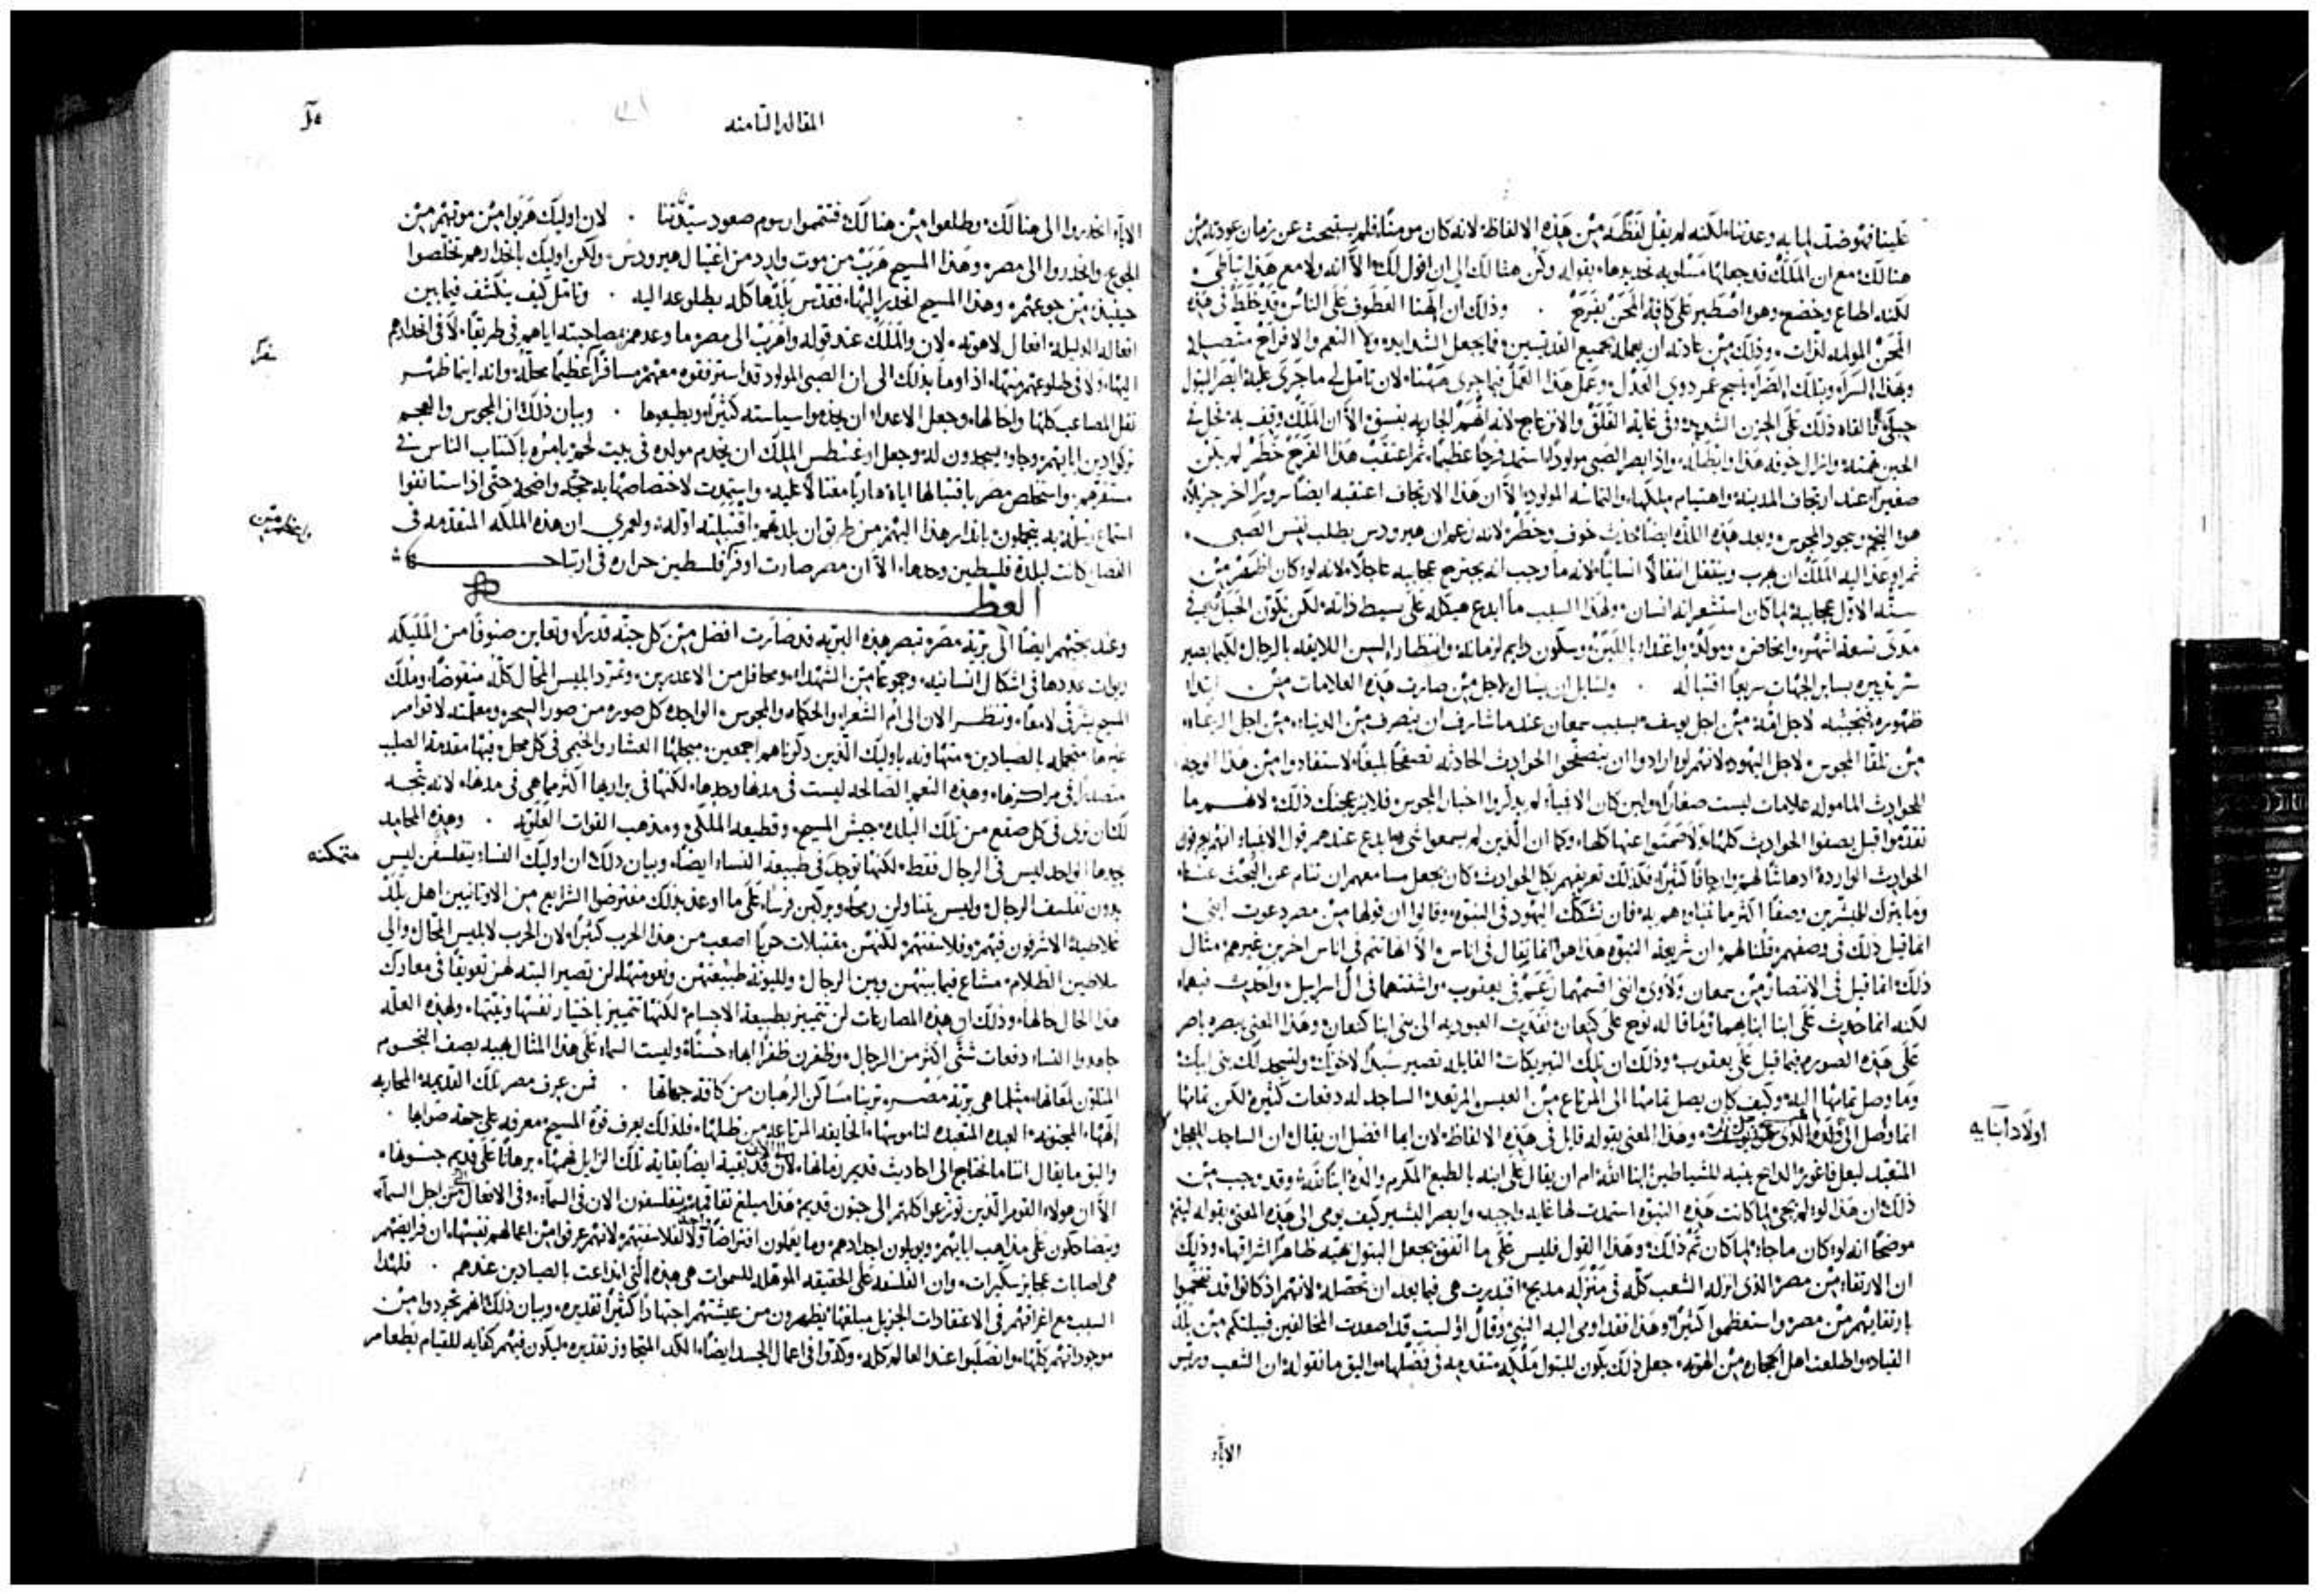 علينا فتوضك لما به وعدتنا لكنه لم يقل لفظة من هذه الالفاظ لانه كان مومنًا فلم يستبحث عن زمان عودته من
هنالك مع ان الملك قد جعلها مسلوبه تحديدها بقوله وكن هنالك الى ان اقول لك الا انه ولا مع هذا تباطى
لكنه اطاع وخضع وهو اصطبر على كافة المحن بفرح وذلك ان الهنا العطوف على الناس قد خلط في هذه
المحن المولمه لذات وذلك من عادته ان يعمله بجميع القديسين فما يجعل الشدايد ولا النعم والافراح متصله
وبهذا السرآء وبتلك الضرآء ينسج عمر ذوي العدل وعمل هذا العمل فيما جرى ههنا لان تامل لي ما جرى عليه ابصر البتول
حبلى فالقاه ذلك على الحزن الشديد وفي غاية القلق والانزعاج لانه اتهم الجاريه بفسق الا ان الملك وقف به في
الحين وازال خوفه هذا وابطاله واذ ابصر الصبي مولودًا استمد فرحًا عظيمًا ثم اعتقب هذا الفرح خطر لم يكن
صغيرًا عند ارتجاف المدينة واهتيام ملكها والتماسه المولود الا ان هذا الارتجاف اعتقبه ايضًا سرورًا اخر جزيلًا
هو النجم وسجود المجوس وبعد هذه اللذه ايضًا يحدث خوف وخطر لانه زعم ان هيرودس يطلب نفس الصبي
ثم اوعز اليه الملك ان يهرب وينتقل انتقالًا انسانيًا لانه ما وجب انه يجترح عجايبه عاجلًا لانه لو كان اظهر من
سنه الاول عجايبه لما كان استشعر انه انسان ولهذا السبب ما ابدع هيكله على بسيط ذاته لكن تكون الحبل به في
مدى تسعة اشهر والمخاض ومولد واغتذاء باللبن وسكون دايم لزمانه وانتظار السن اللايقه بالرجال لكيما يصير
سر تدبيره بساير الجهات سريعًا اقتباله ولسايل ان يسال لاجل من صارت هذه العلامات من ابتدا
ظهوره فنجيبه لاجل امه من اجل يوسف بسبب سمعان عندما شارف ان ينصرف من الدنيا من اجل الرعاه
من تلقا المجوس لاجل اليهود لانهم لو ارادوا ان يتصفحوا الحوادث الحادثه تصفحًا بليغًا لاستفادوا من هذا الوجه
للحوادث المامولة علامات ليست صغارًا ولين كان الانبيآء لم يذكروا اخبار المجوس فلا يزعجنك ذلك لانهم ما
تقدموا قبل بصفوا الحوادث كلها ولا صمتوا عنها كلها وكما ان الذين لم يسمعوا شي
الحوادث الواردة ادهاشًا لهم وارجافًا كثيرًا فكذلك تعريفهم بكل الحوادث كان يجعل سامعهم ان تنام عن البحث عنها
وما يترك للمبشرين وصفًا اكثر مما تنباوا هم به فان تشكك اليهود في النبوه وقالوا ان قولها من مصر دعوت ابني
انما قيل ذلك في وصفهم قلنا لهم ان شريعة النبوه هذه هي انما يقال في اناس الا انها تتم في اناس اخرين غيرهم مثال
ذلك انما قيل في الانتصار من سمعان ولاوي انني اقسمهما زعم في يعقوب واشتتهما في آل اسراييل واحدث فيهما
لكنه انما حدث على ابنا ابنايهما وما قاله نوح على كنعان نفذت العبوديه الى بني ابنا كنعان وهذا المعنى يبصره باصر
على هذه الصورة فيما قيل على يعقوب وذلك ان تلك التبريكات القايله تصير سيدًا لاخوتك ولتسجد لك بني ابيك
وما وصل تمامها اليه وكيف كان يصل تمامها الى المرتاع من العيس المرتعد الساجد له دفعات كثيره لكن تمامها
انما وصل الى
المتعبد لبعل فاغور الذابح بنيه للشياطين ابنا الله ام ان يقال على ابنه بالطبع المكرم والده ابنًا لله وقد وجب من
ذلك ان هذا لو لم يجى لما كانت هذه النبوه استمدت لها غايه واجبه وابصر البشير كيف يومى الى هذه المعنى بقوله ليتم
موضحًا انه لو كان ما جاء لما كان تم ذلك وهذا القول فليس على ما اتفق يجعل البتول هيه ظاهرًا اشراقها وذلك
ان الارتقاء من مصر الذي انزله الشعب كله في منزلة مديح اقتدرت هي فيما بعد ان تحصله لانهم اذ كانوا قد تفخموا
بارتقايهم من مصر واستعظموا كثيرًا وهذا فقد اومى اليه النبي وقال اوليست قد اصعدت المخالفين قبيلتكم من بلد
القباد واطلعت اهل الحجاره من الهوته جعل ذلك يكون للبتول ملكه متقدمه في فضلها واليق ما نقوله ان الشعب وريس
الابآء
اولاد آبنايه
المقاله الثامنه
الابآء انحدروا الى هنالك وطلعوا من هنالك فتمموا رسوم صعود سيدنا لان اوليك هربوا من موتهم من
الجوع وانحدروا الى مصر وهذا المسيح هرب من موت وارد من اغتيال هيرودس ولكن اوليك بانحدارهم تخلصوا
حينيذ من جوعهم وهذا المسيح انحدر اليها فقدس بلدها كله بطلوعه اليه وتامل كيف ينكشف فيما بين
افعاله الذليلة افعال لاهوته لان والملك عند قوله واهرب الى مصر ما وعدهم بمصاحبته اياهم في طريقها لا في انحدارهم
اليها ولا في طلوعهم منها اذا وما بذلك الى ان الصبي المولود قد استرفقوه معهم مسافرًا عظيمًا محله وانه اينما ظهر
نقل المصاعب كلها واحالها وجعل الاعداء ان يخدموا سياسته كثيرًا ويطيعوها وبيان ذلك ان المجوس والعجم
تركوا دين ابايهم وجاوا يسجدون له وجعل اوغسطس الملك ان يخدم مولده في بيت لحم بامره باكتتاب الناس في
مستقرهم واستخلص مصر باقتبالها اياه هاربًا مغتالًا عليه واستمدت لاختصاصها به حجة واضحة حتى اذا استانفوا
استماع
الفضل كانت لبلدة فلسطين وحدها الا ان مصر صارت اوفر من فلسطين حراره في ارتياحها
العظـ
وعند مجيهم ايضًا الى برية مصر تبصر هذه البريه قد صارت افضل من كل جنه قدرًا وتعاين صنوفًا من الملايكه
ربوات عددها في اشكال انسانيه وجموعًا من الشهداء ومحافل من العذارين وتمرد ابليس المحال كله منقوضًا وملك
المسيح يشرق لامعًا وتنظر الان الى ام الشعرا والحكما والمجوس الواجده كل صوره من صور السحر ومعلمته لاقوام
غيرها متجمله بالصيادين متهاونه باوليك الذين ذكرناهم اجمعين مبجلها العشار والخيمى في كل محل وفيها مقدمة الصليب
متصدرًا في مراكزها وهذه النعم الصالحه ليست في مدنها وحدها لكنها في براريها اكثر مما هي في مدنها لانه يتجه
لك ان ترى في كل صقع من تلك البلده جيش المسيح وقطيعه الملكي ومذهب القوات العلويه وهذه المحامد
يجدها الواجد ليس في الرجال فقط لكنها توجد في طبيعة النساء ايضًا وبيان ذلك ان اوليك النساء يتفلسفن ليس
بدون تفلسف الرجال وليس يتناولن رمحًا ويركبن فرسًا على ما اوعز بذلك مفترضوا الشرايع من الاوثانيين اهل بلد
غلاضية الاشرفون فيهم وفلاسفتهم لكنهن مقتبلات حربًا اصعب من هذا الحرب كثيرًا لان الحرب لابليس المحال والى
سلاطين الظلام مشاع فيما بينهن وبين الرجال وللبونة طبيعتهن ونعومتها لن تصير البته لهن تعويقًا في معارك
هذا الحال حالها وذلك ان هذه المصارعات لن تتميز بطبيعة الاجسام لكنها تتميز باختيار نفسها ونيتها ولهذه العله
جاهدوا النساء دفعات شتى اكثر من الرجال وظفرن ظفرًا ابهاء حسنًا وليست السماء على هذا المثال بهيه بصف النجوم
المتلون لمعانها مثلما هي برية مصر ترينا مساكن الرهبان من كافة جهاتها فمن عرف مصر تلك القديمة المحاربه
الهها المجنونه العبده المتعبده لنا موسها الخايفه المرتاعه من ظلها فلذلك يعرف قوة المسيح معرفه على جهة صوابها
واليق ما يقال اننا ما نحتاج الى احاديث قديم زمانها لان قد بقية ايضًا بقايه تلك الرذايل فيها برهانًا على قديم جنونها
الا ان هولاء القوم الذين توزعوا كلهم الى جنون قديم هذا مبلغ تفاقمه يتفلسفون الان في السمآء وفي الافعال من اجل السمآء
ويتضاحكون على مذاهب ابايهم ويويلون اجدادهم وما يقبلون افتراضًا ولا لفلاسفتهم لانهم عرفوا من اعمالهم نفسها ان فرايضهم
هي اصابات عجايز سكيرات وان الفلسفة على الحقيقه الموهله للسموات هي هذه التي ابتدعت بالصيادين عندهم فلهذا
السبب مع اغراقهم في الاعتقادات الجزيل مبلغها يظهرون من عيشتهم اجتهادًا كثيرًا تقديره وبيان ذلك انهم تجردوا من
موجوداتهم كلها وانصلبوا عند العالم كله وكدوا في اعمال الجسد ايضًا الكد المتجاوز تقديره ليكون فيهم كفايه للقيام بطعامر
متمكنه